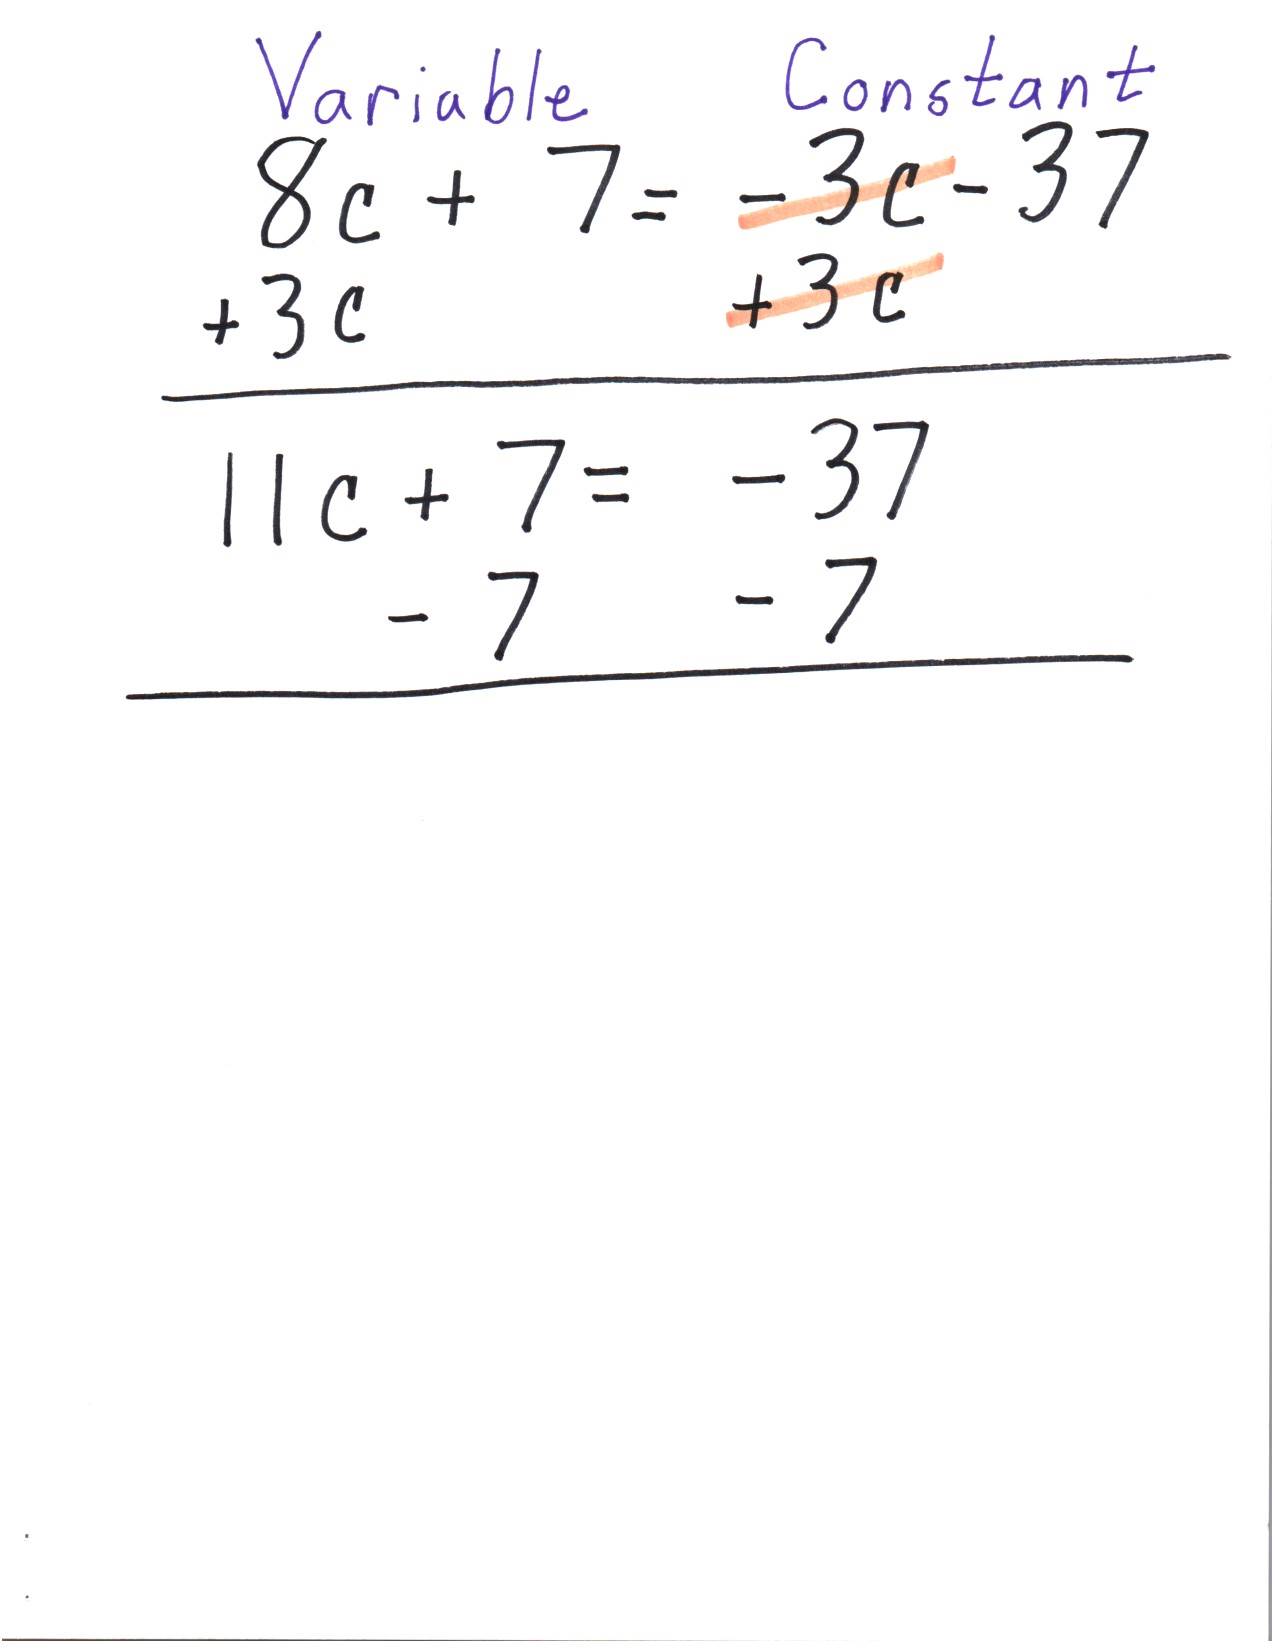 Variable Constant
8c + 7 = -3c - 37
+3c +3c
11c + 7 = -37
- 7 - 7